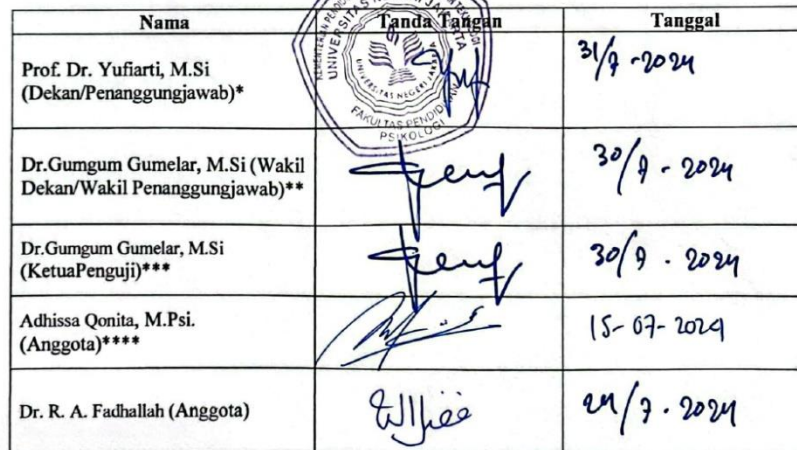 Nama Tanda Tangan Tanggal
Prof. Dr. Yufiarti, M.Si
(Dekan/Penanggungjawab)*
31/7-2024
UNIVERSITAS NEGERI JAKARTA
FAKULTAS PENDIDIKAN
PSIKOLOGI
Dr.Gumgum Gumelar, M.Si (Wakil
Dekan/Wakil Penanggungjawab)**
30/7-2024
Dr.Gumgum Gumelar, M.Si
(KetuaPenguji)***
30/7-2024
Adhissa Qonita, M.Psi.
(Anggota)****
15-07-2024
Dr. R. A. Fadhallah (Anggota)
24/7-2024